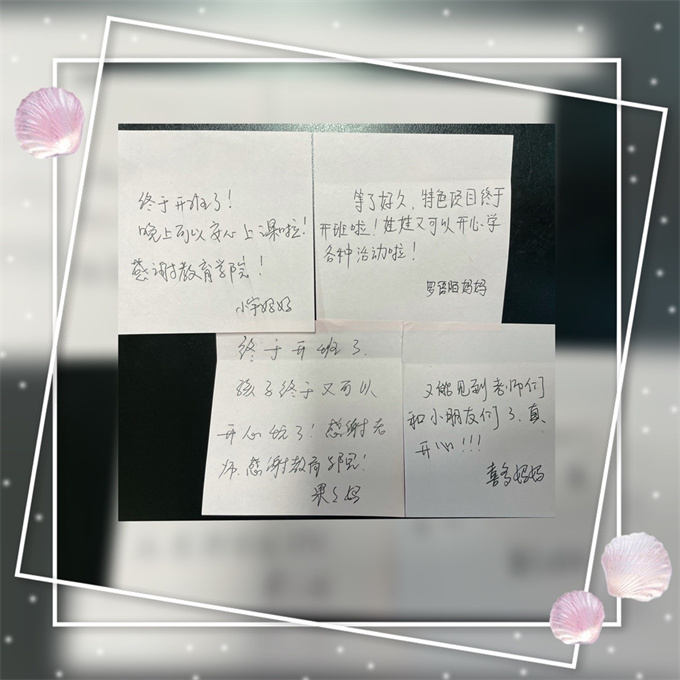 终于开班了!
晚上可以安心上课啦!
感谢教育学院!
小宇妈妈
等了好久,特色项目终于
开班啦!娃娃又可以开心学
各种活动啦!
罗语陌妈妈
终于开班了.
孩子终于又可以
开心玩了!感谢老
师.感谢教育学院!
果果妈
又能见到老师们
和小朋友们了.真
开心!!!
喜多妈妈